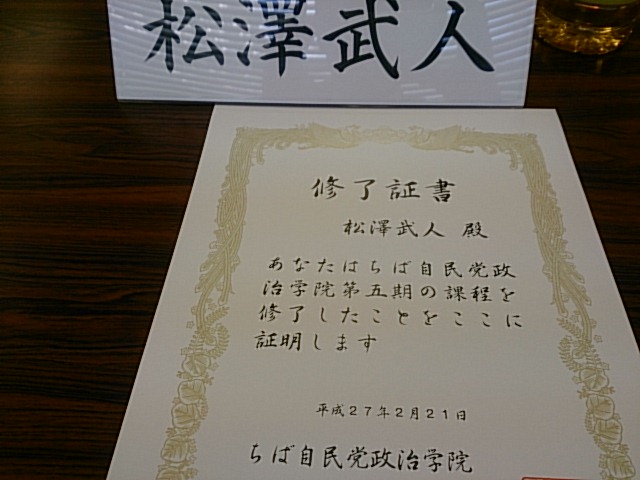 松澤武人
修了証書
松澤武人 殿
あなたはちば自民党政
治学院第五期の課程を
修了したことをここに
証明します
平成27年2月21日
ちば自民党政治学院